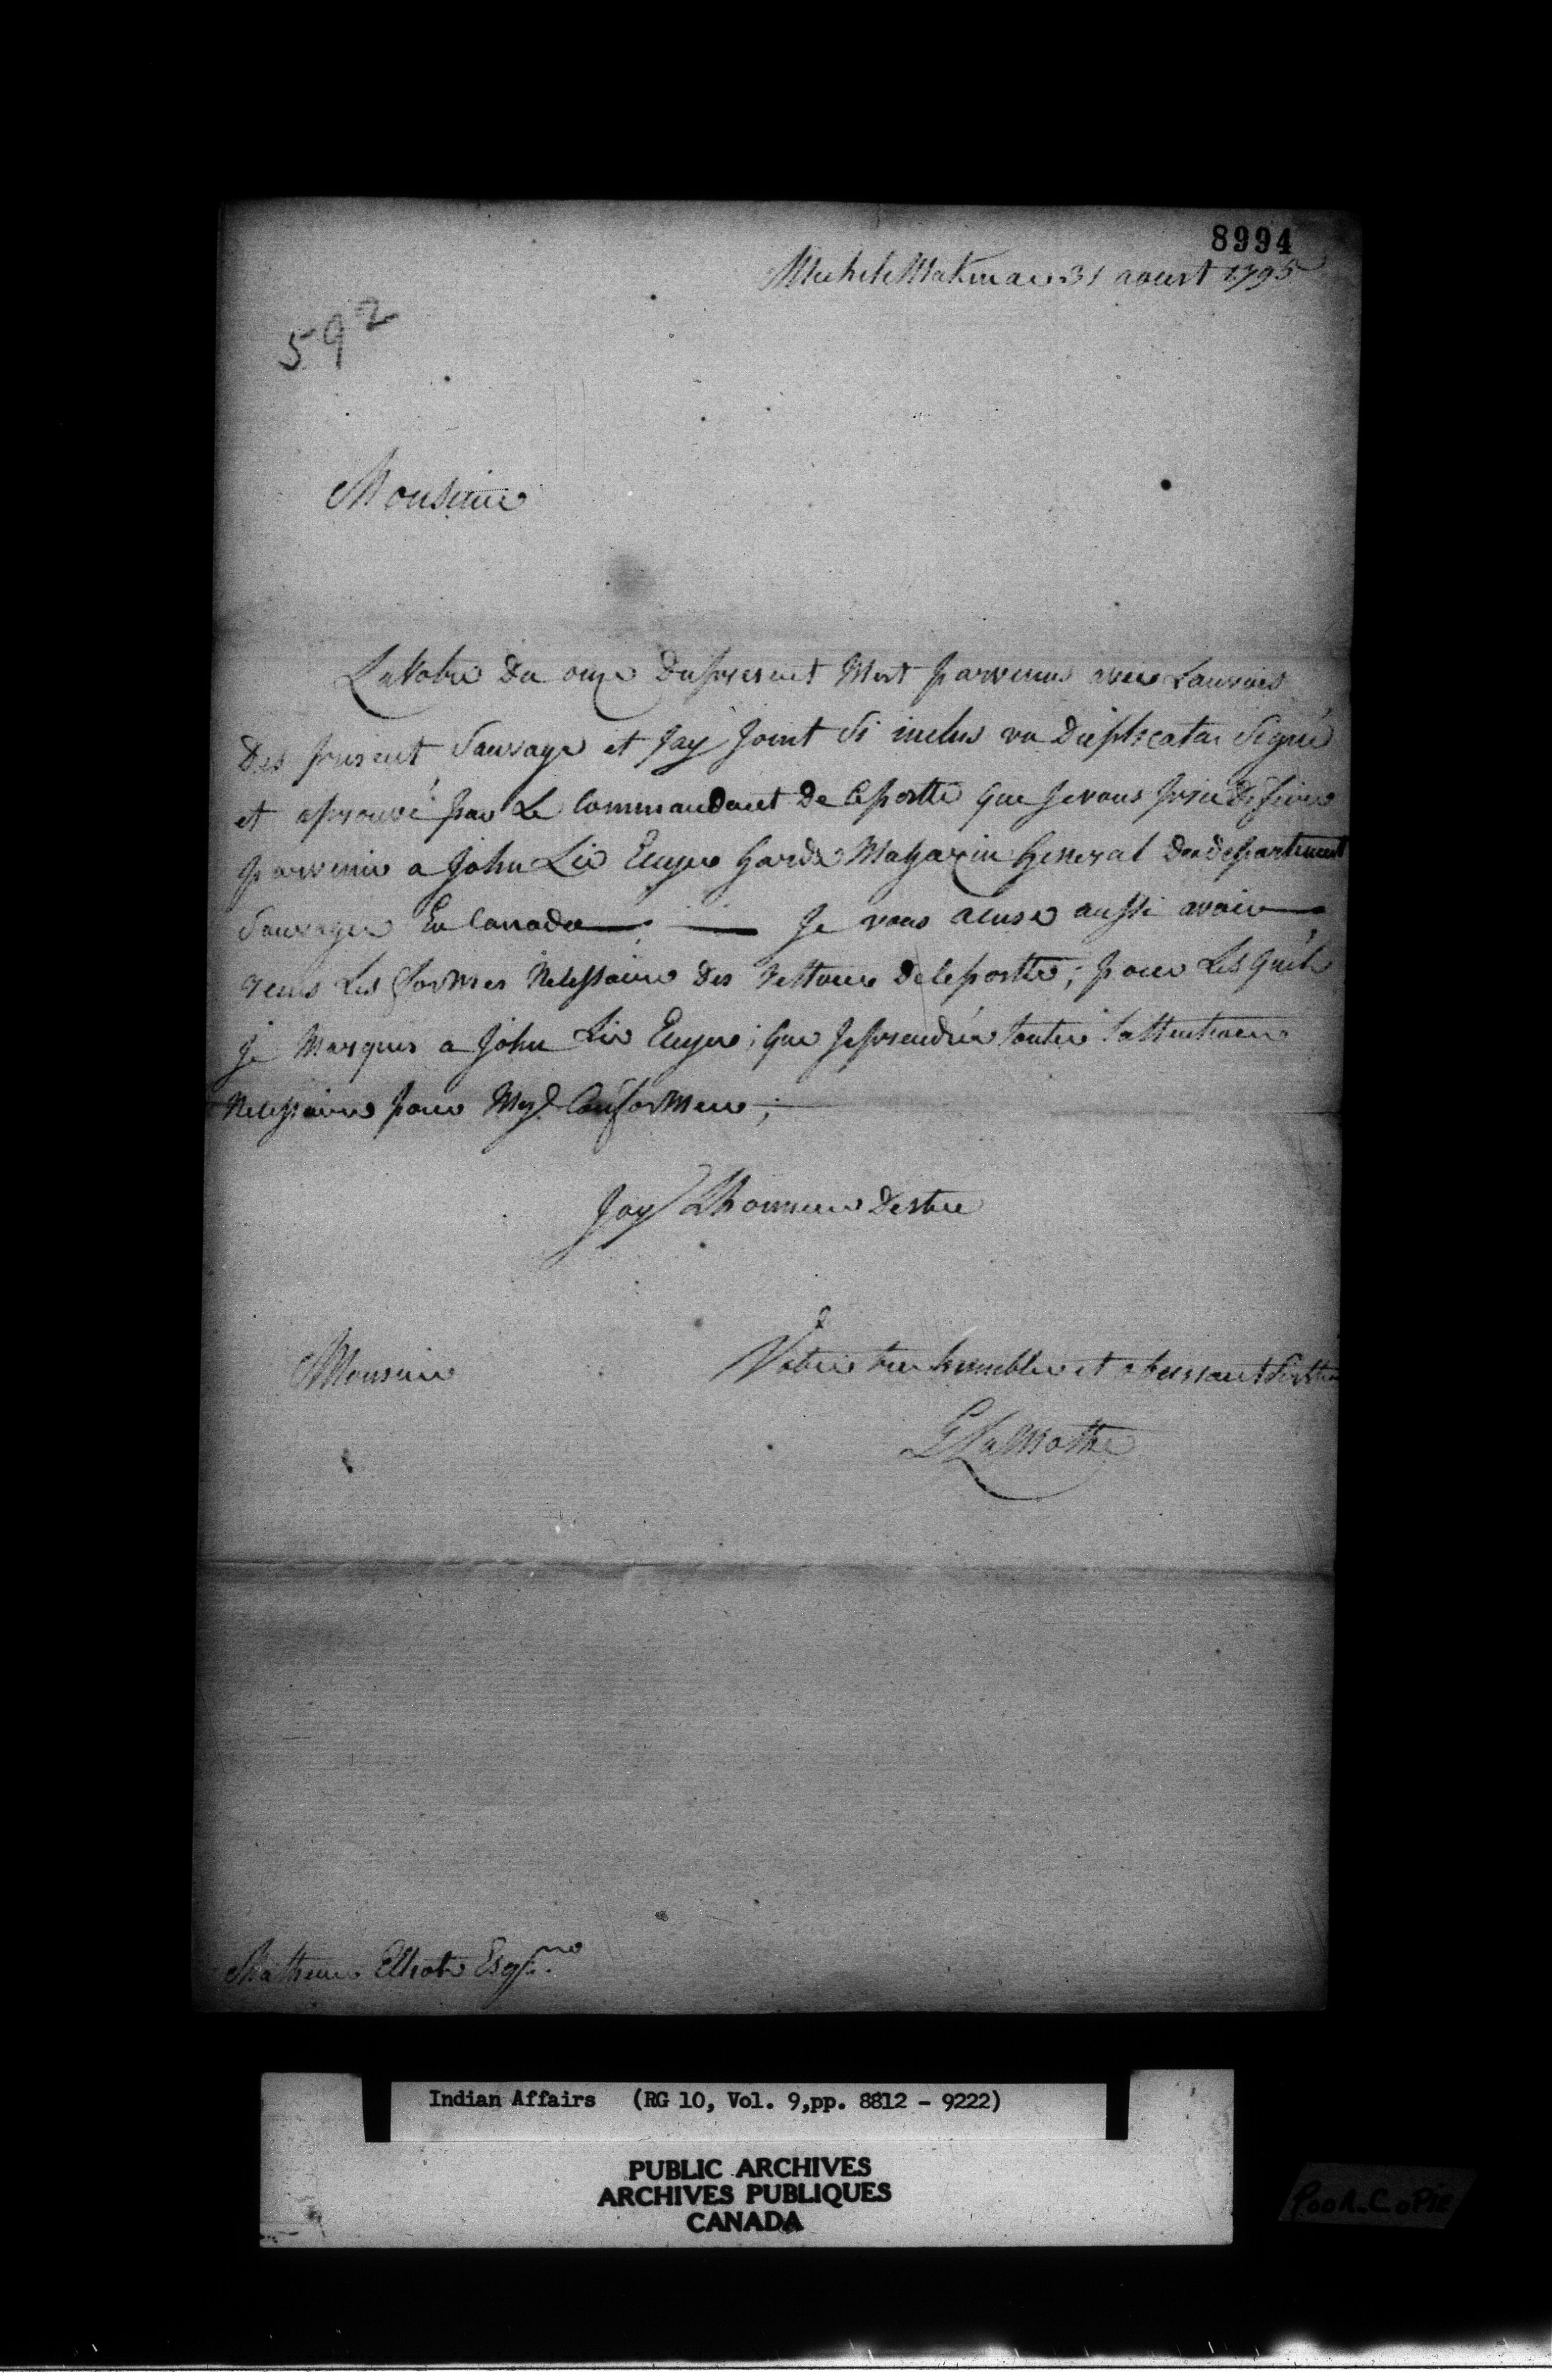 8994
MichiliMakinac 31 aoust 1795
59 2
Monsieur
LaVotre du onze du present Mest parvenus avec Lanvois
Des present Sauvage et Jay Joint Si inclus un Duplicata Signé
et aprouvé par Le Commandant De Ceposte que Je vous prie De faire
parvenir a John Lee Ecuyer Garde Magazin General du departement
Sauvage En Canada Je vous acuse aussi avoir
reçus Les formes Nesessaire Des Retours De ceposte; pour Lesquels
Je Marques a John Lee Ecuyer; que Je prendrée toutes Lattention
Nesessaire pour My Conformer;
Jay Lhonneur Destre
Monsieur
Votre tres humble et obeissant
G LaMothe
Mathew Elliott Esqr
Indian Affairs (RG 10, Vol. 9,pp. 8812 - 9222)
PUBLIC ARCHIVES
ARCHIVES PUBLIQUES
CANADA
POOR COPIE